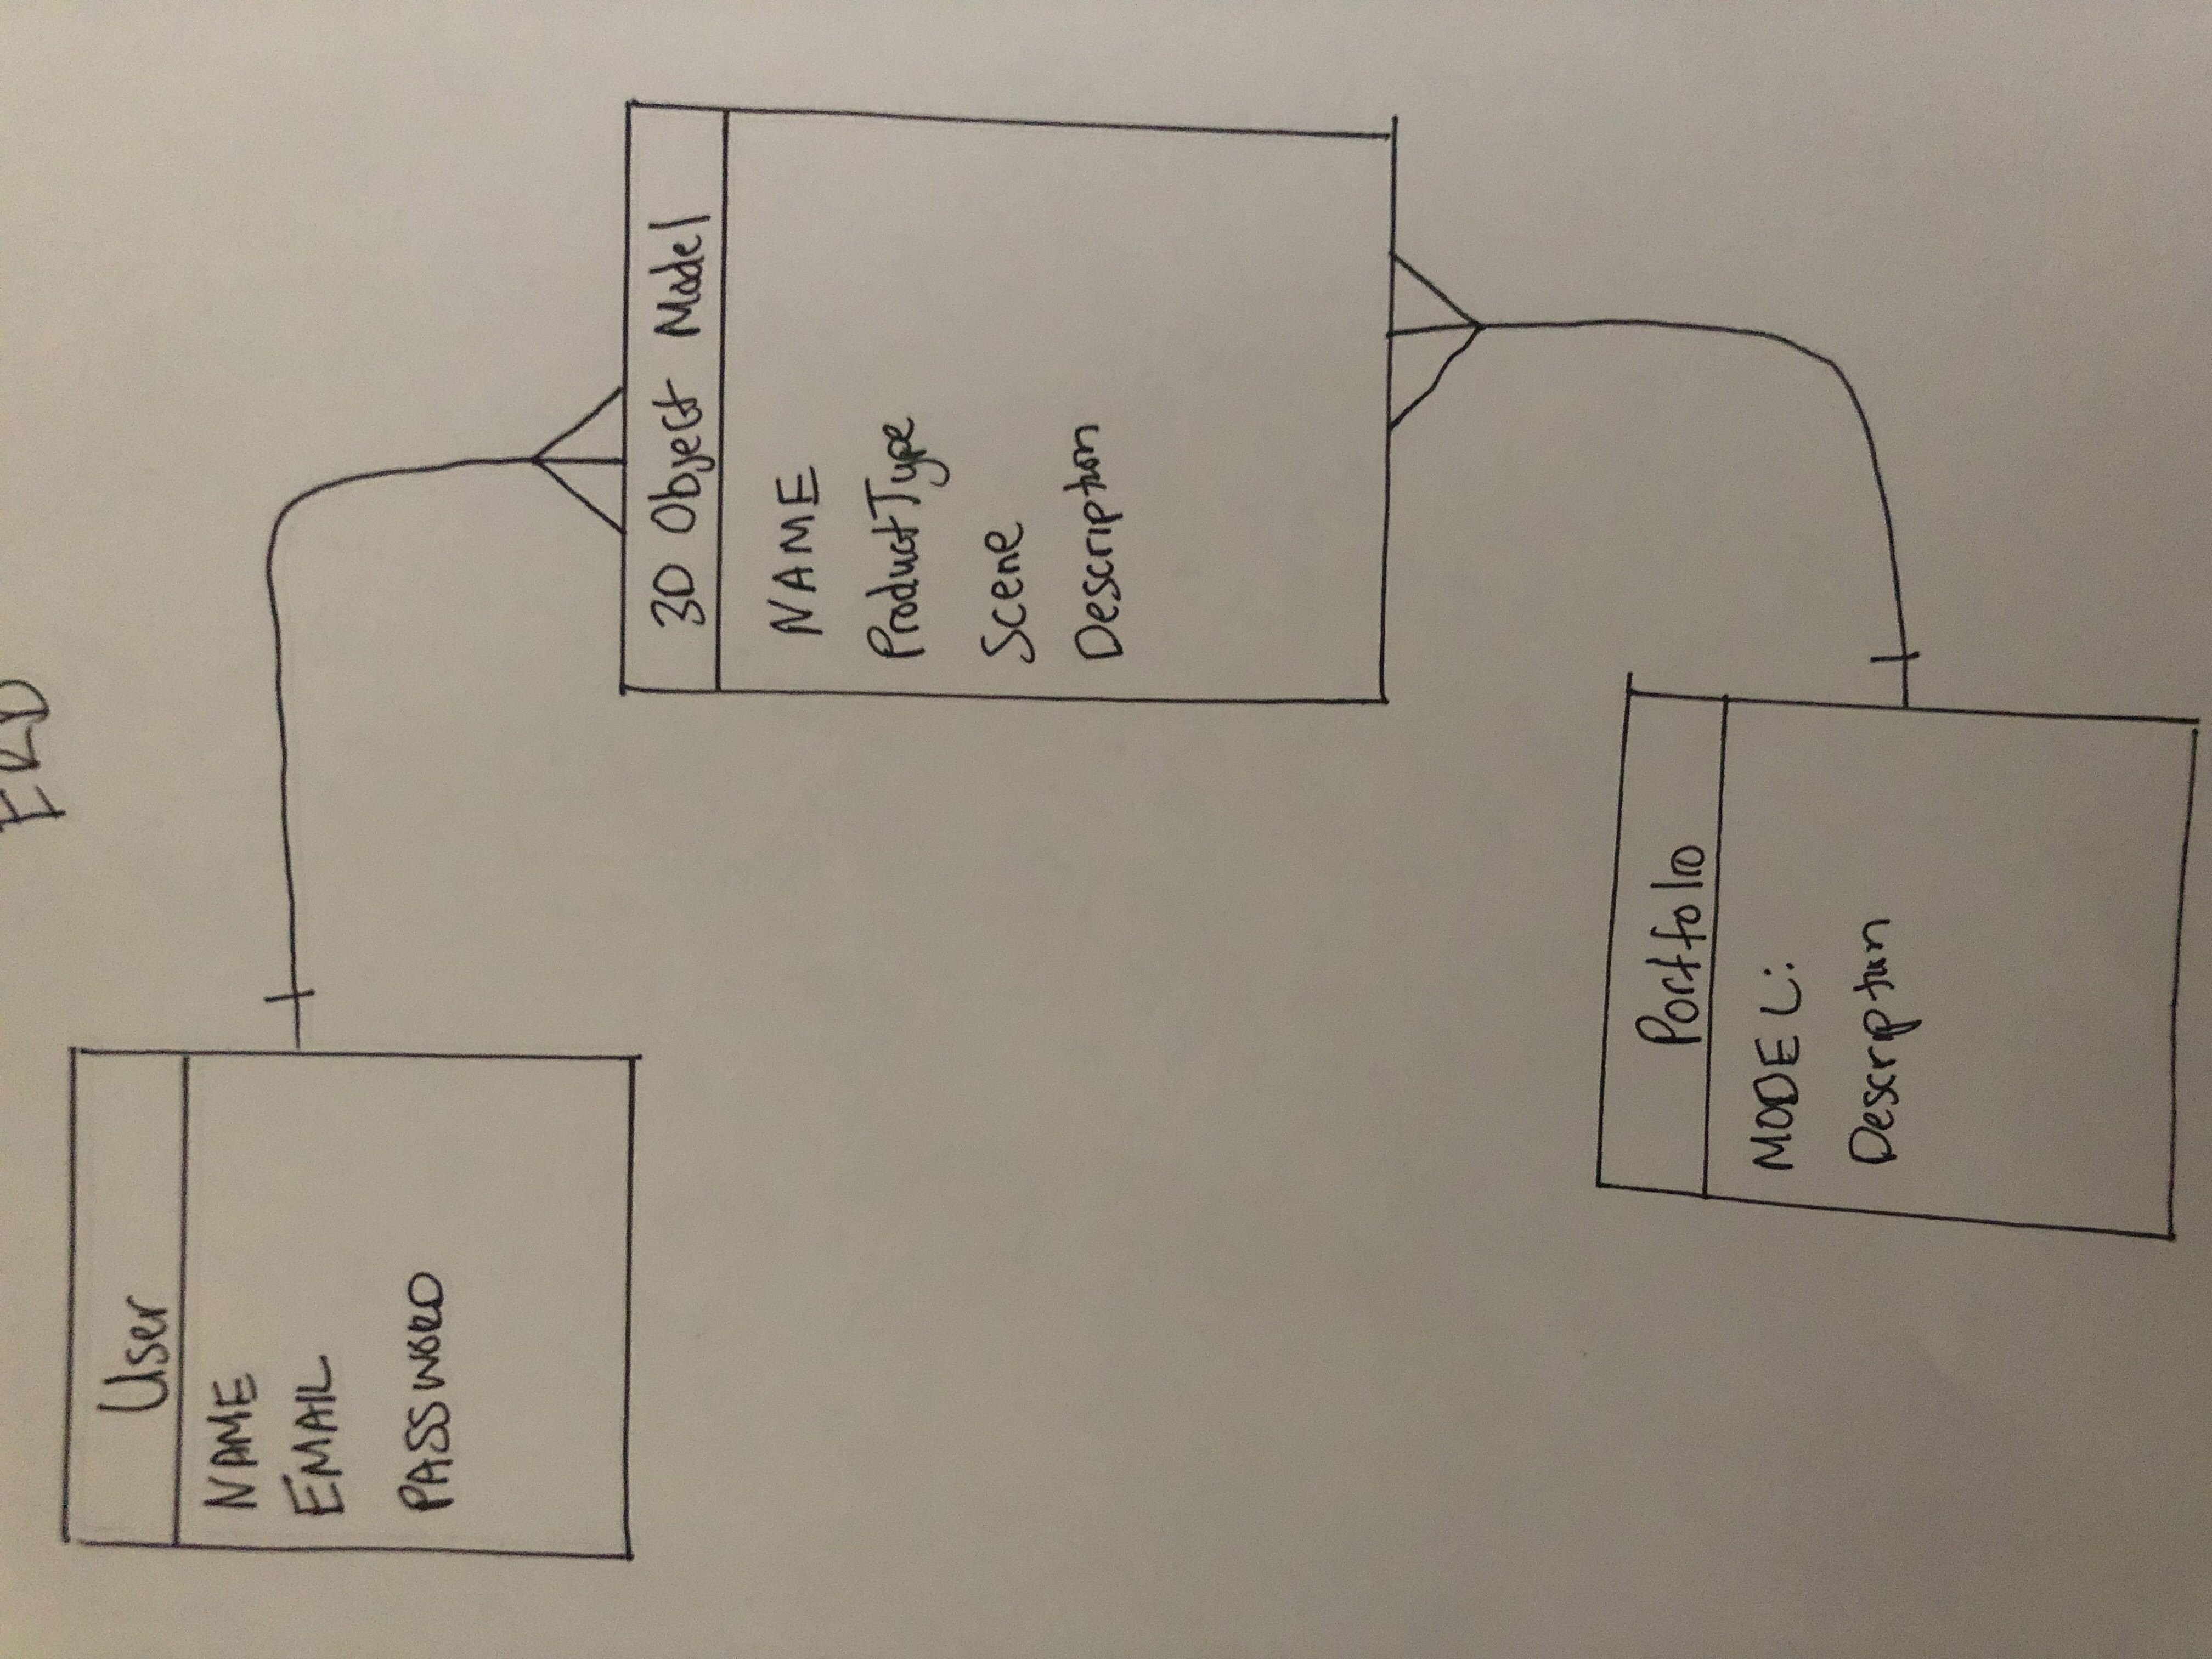 ERD
User
NAME
EMAIL
PASSWORD
3D Object Model
NAME
ProductType
Scene
Description
Portfolio
MODEL:
Description